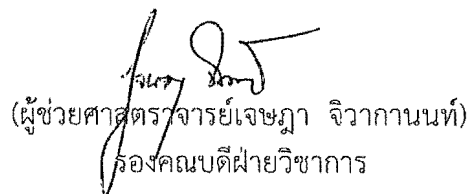 (ผู้ช่วยศาสตราจารย์เจษฎา จิวากานนท์)
รองคณบดีฝ่ายวิชาการ